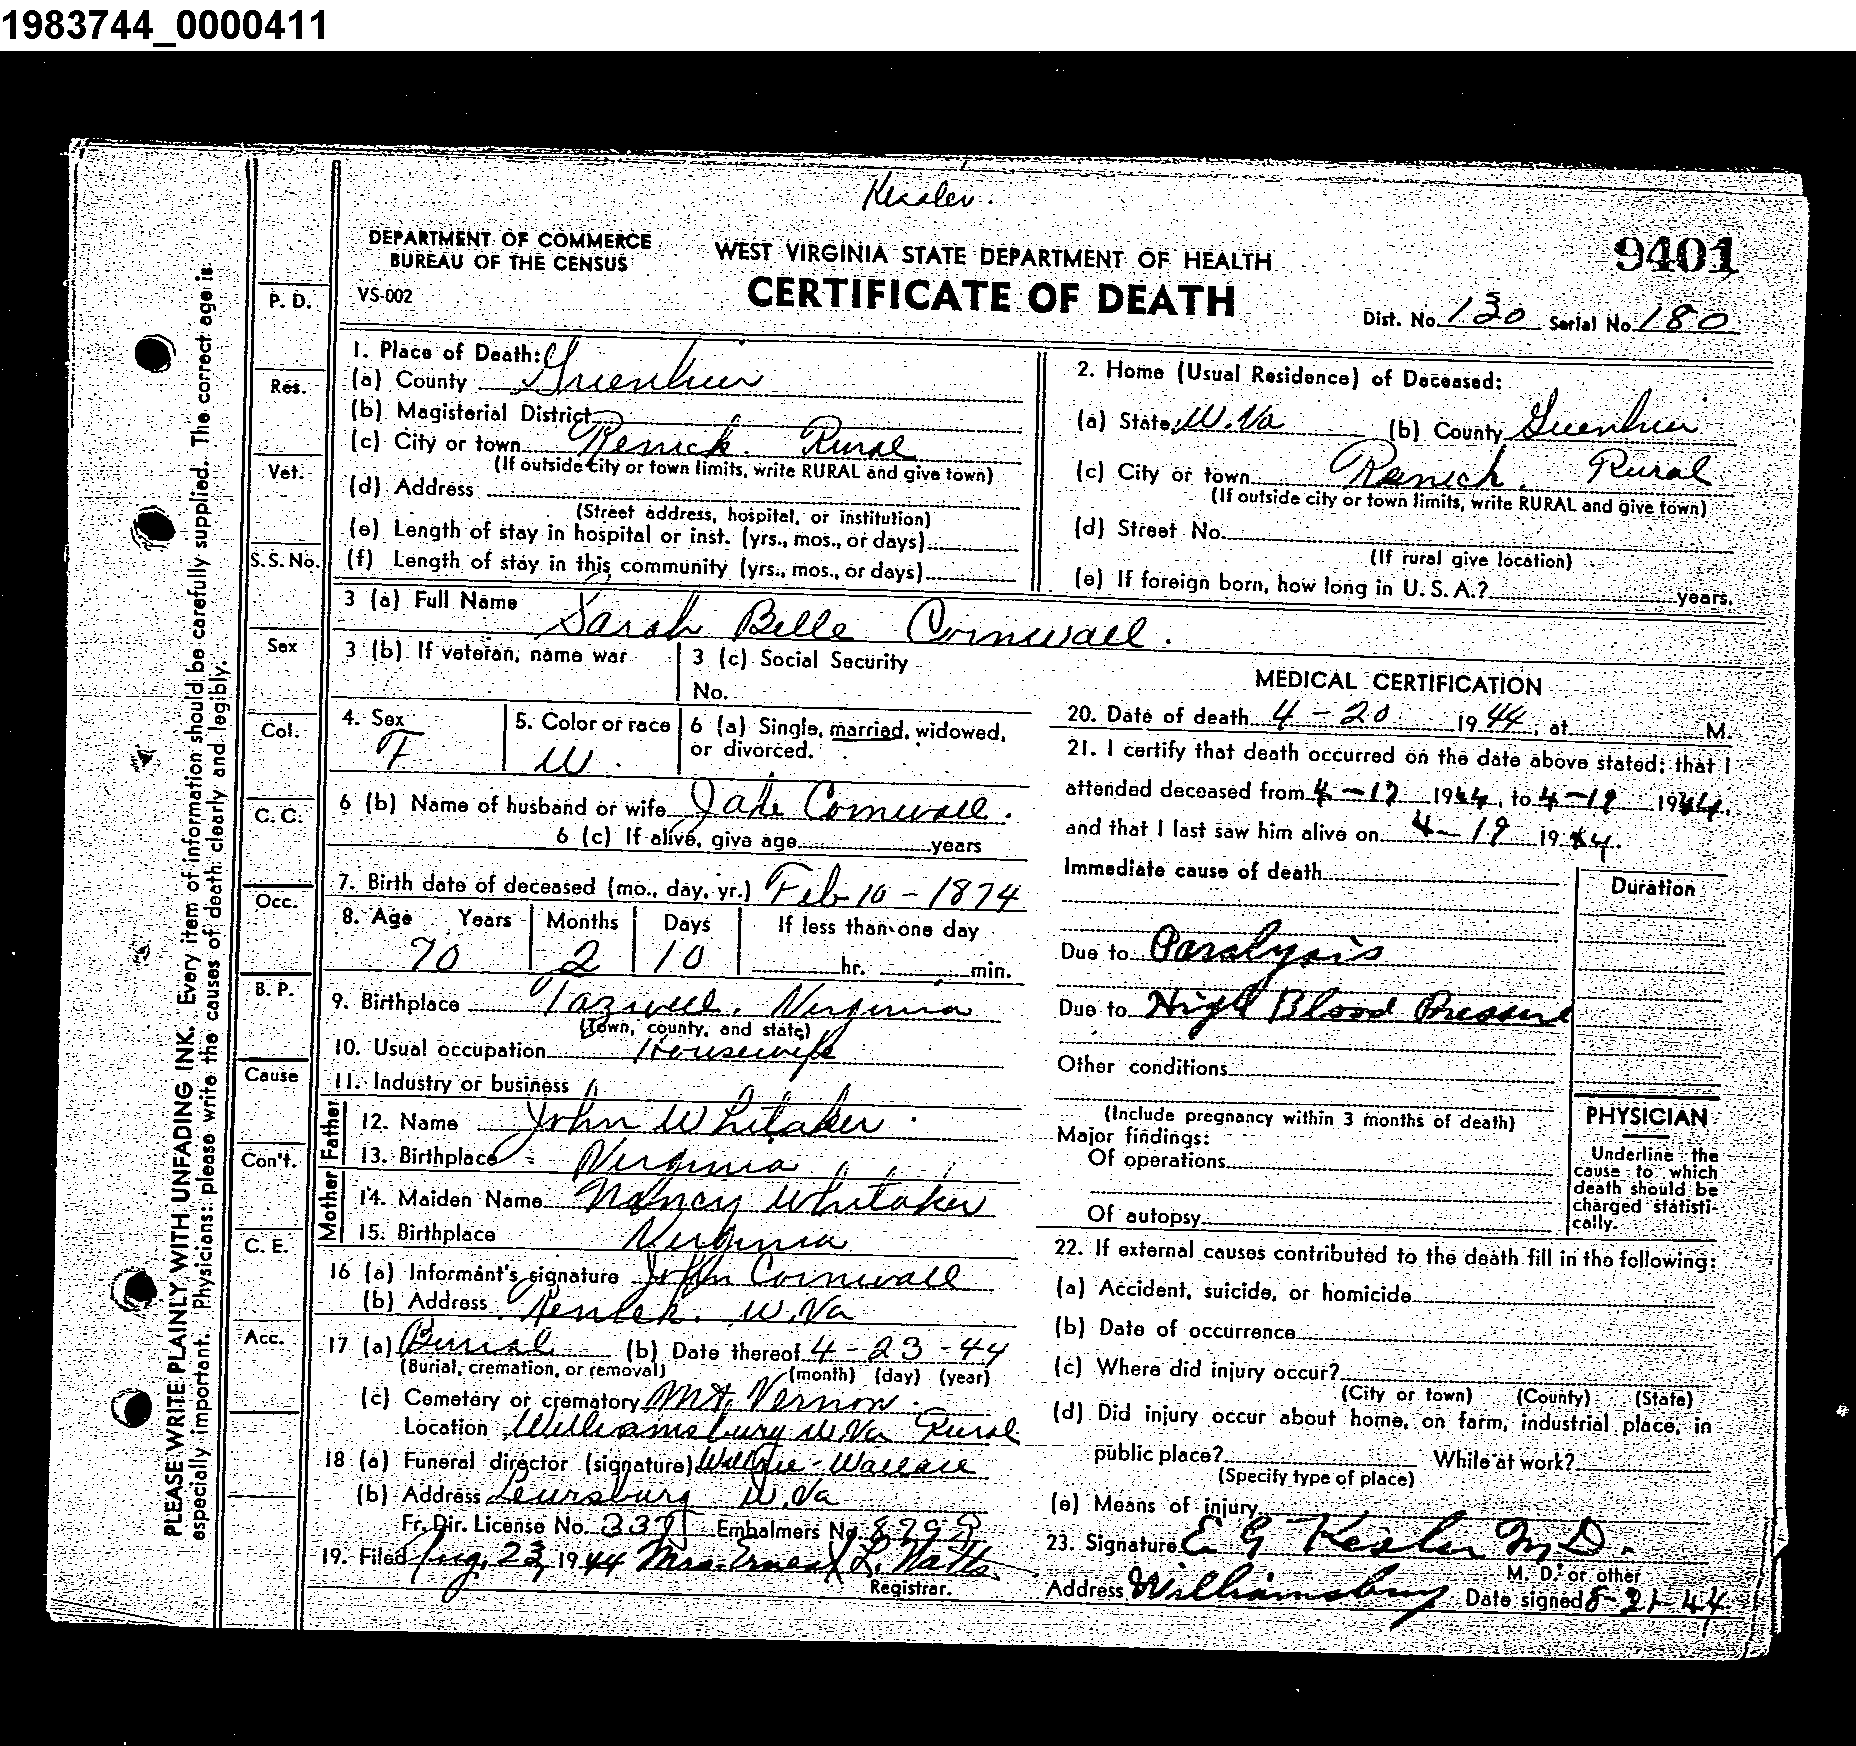 1983744_0000411
Kessler.
DEPARTMENT OF COMMERCE
BUREAU OF THE CENSUS
WEST VIRGINIA STATE DEPARTMENT OF HEALTH
9401
VS-002
CERTIFICATE OF DEATH
Dist. No. 130 Serial No. 180
1. Place of Death:
(a) County Greenbrier
(b) Magisterial District
(c) City or town Renick. Rural
(If outside city or town limits, write RURAL and give town)
(d) Address
(Street address, hospital, or institution)
(e) Length of stay in hospital or inst. (yrs., mos., or days)
(f) Length of stay in this community (yrs., mos., or days)
2. Home (Usual Residence) of Deceased:
(a) State W.Va (b) County Greenbrier
(c) City or town Renick. Rural
(If outside city or town limits, write RURAL and give town)
(d) Street No.
(If rural give location)
(e) If foreign born, how long in U.S.A.? years.
3 (a) Full Name Sarah Belle Cornwall.
3 (b) If veteran, name war
3 (c) Social Security
No.
4. Sex F
5. Color or race W.
6 (a) Single, married, widowed,
or divorced.
6 (b) Name of husband or wife Jake Cornwall.
6 (c) If alive, give age years
7. Birth date of deceased (mo., day, yr.) Feb 10 - 1874
8. Age Years Months Days If less than one day
70 2 10 hr. min.
9. Birthplace Tazwell, Virginia
(Town, county, and state)
10. Usual occupation Housewife
11. Industry or business
Father
12. Name John Whitaker
13. Birthplace Virginia
Mother
14. Maiden Name Nancy Whitaker
15. Birthplace Virginia
16 (a) Informant's signature John Cornwall
(b) Address Renick. W.Va
17 (a) Burial (b) Date thereof 4-23-44
(Burial, cremation, or removal) (month) (day) (year)
(c) Cemetery or crematory Mt. Vernon.
Location Williamsburg W.Va Rural
18 (a) Funeral director (signature) Wallace
(b) Address Lewisburg W.Va
Fr. Dir. License No. 337 Embalmers No.
19. Filed Aug. 23, 1944 Mrs. Ernest L. Watts.
Registrar.
MEDICAL CERTIFICATION
20. Date of death 4-20 1944, at M.
21. I certify that death occurred on the date above stated; that I
attended deceased from 4-17 1944, to 4-19 1944.
and that I last saw him alive on 4-19 1944.
Immediate cause of death
Duration
Due to Paralysis
Due to High Blood Pressure
Other conditions
(Include pregnancy within 3 months of death)
Major findings:
Of operations
Of autopsy
PHYSICIAN
Underline the
cause to which
death should be
charged statisti-
cally.
22. If external causes contributed to the death fill in the following:
(a) Accident, suicide, or homicide
(b) Date of occurrence
(c) Where did injury occur?
(City or town) (County) (State)
(d) Did injury occur about home, on farm, industrial place, in
public place? While at work?
(Specify type of place)
(e) Means of injury
23. Signature E G Kesler M.D.
M. D. or other
Address Williamsburg Date signed 8-21-44
P. D.
Res.
Vet.
S.S. No.
Sex
Col.
C. C.
Occ.
B. P.
Cause
Con't.
C. E.
Acc.
PLEASE WRITE PLAINLY WITH UNFADING INK. Every item of information should be carefully supplied. The correct age is
especially important. Physicians: please write the causes of death clearly and legibly.